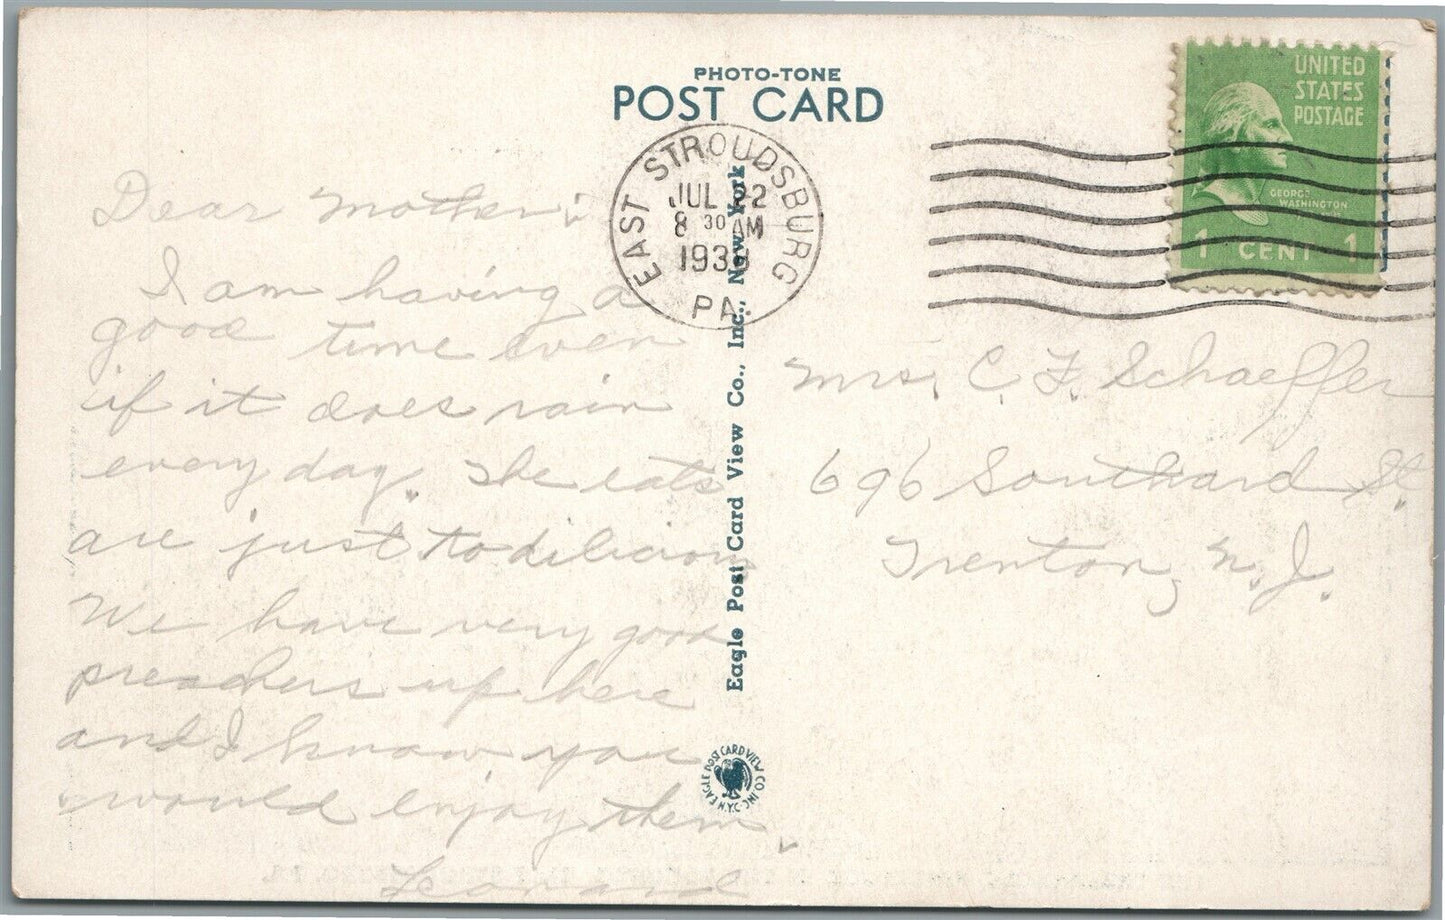 PHOTO-TONE
POST CARD
EAST STROUDSBURG
JUL 22
8 30 AM
1938
PA.
UNITED
STATES
POSTAGE
GEORGE
WASHINGTON
1 CENT 1
Dear Mother:
I am having a
good time even
if it does rain
every day. The eats
are just to dilicious
We have very good
preachers up here
and I know you
would enjoy them.
Leonard
Eagle Post Card View Co., Inc., New York
EAGLE POST CARD VIEW CO. INC. N.Y.C.
Mrs. C. F. Schaeffer
696 Southard St.
Trenton, N.J.